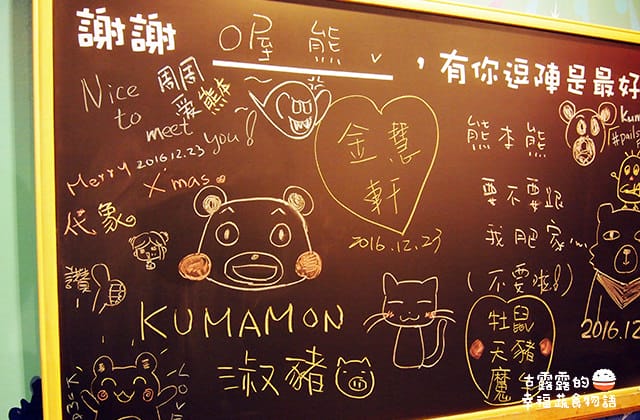 謝謝 喔熊 ，有你逗陣是最好
Nice to meet you!
周周
爱熊本
Merry X'mas
2016.12.23
代象
讚!
金慧軒
2016.12.23
熊本熊
要不要跟
我肥家
(不要啦!)
KUMAMON
淑豬
牡鼠
天豬
魔羊
LOVE
Kuma
2016.12
吉露露的
幸福蔬食物語